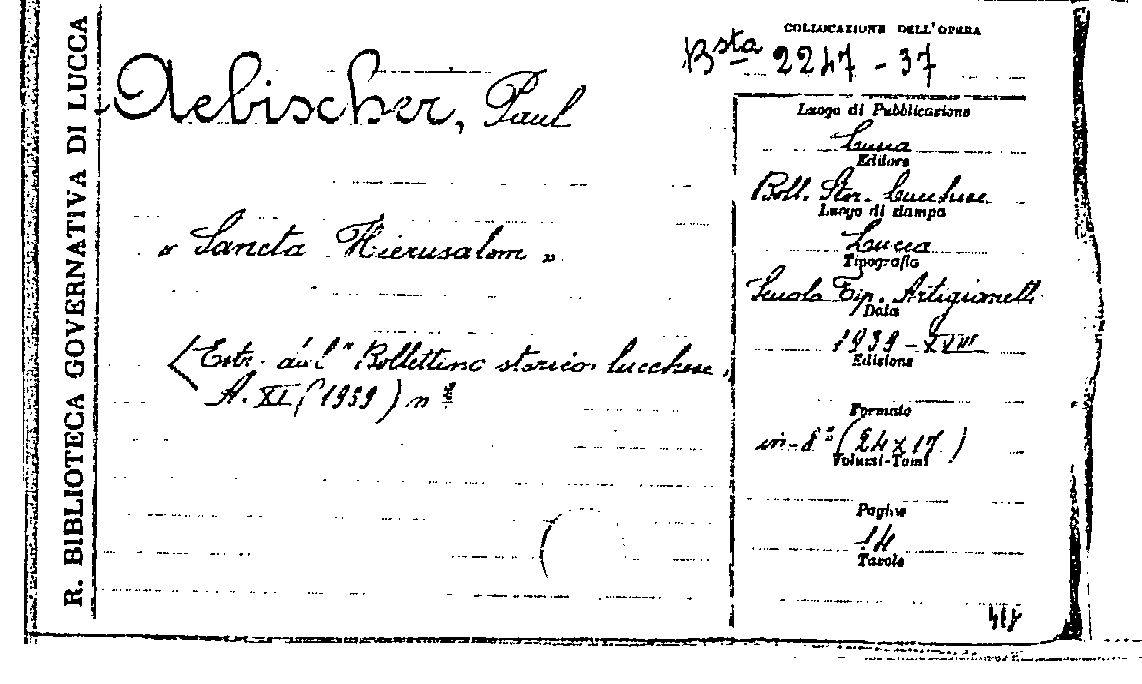 R. BIBLIOTECA GOVERNATIVA DI LUCCA
COLLOCAZIONE DELL'OPERA
Bsta 2247 - 37
Aebischer, Paul
« Sancta Hierusalem »
Estr. dal " Bollettino storico lucchese,
A. XI (1939) n
Luogo di Pubblicazione
Lucca
Editore
Boll. Stor. Lucchese
Luogo di stampa
Lucca
Tipografia
Scuola Tip. Artigianelli
Data
1939 - XVII
Edizione
Formato
in-8º (24x17)
Volumi-Tomi
Pagine
14
Tavole